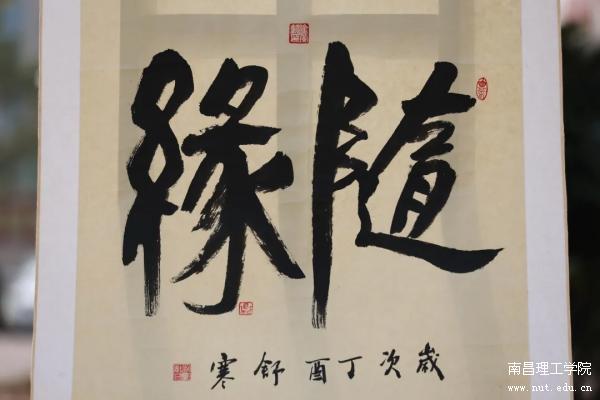 隨緣
歲次丁酉舒寒
南昌理工学院
www.nut.edu.cn